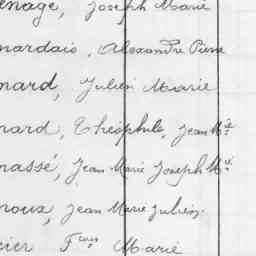 enage, Joseph Marie
nardais, Alexandre Pierre
nard, Julien Marie
nard, Théophile, Jean Mie
nassé, Jean Marie Joseph Mie
noux, Jean Marie Julien
cier Fçois Marie